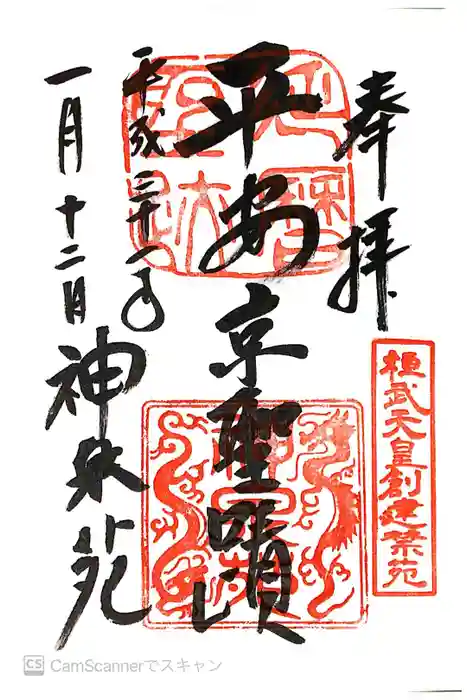 奉拝
桓武天皇創建禁苑
平安京聖蹟
平成三十一年
一月十二日
神泉苑
CS CamScannerでスキャン